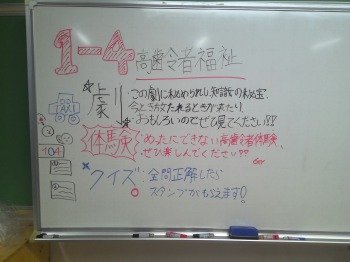 1-4 高齢者福祉
劇
この劇に秘められし知識の秘宝、
今とき放たれるときが来たり、
おもしろいのでぜひ見てください!!
TAXI
体験
めったにできない高齢者体験、
ぜひ楽しんでください??
104
クイズ
全問正解したら
スタンプがもらえます!